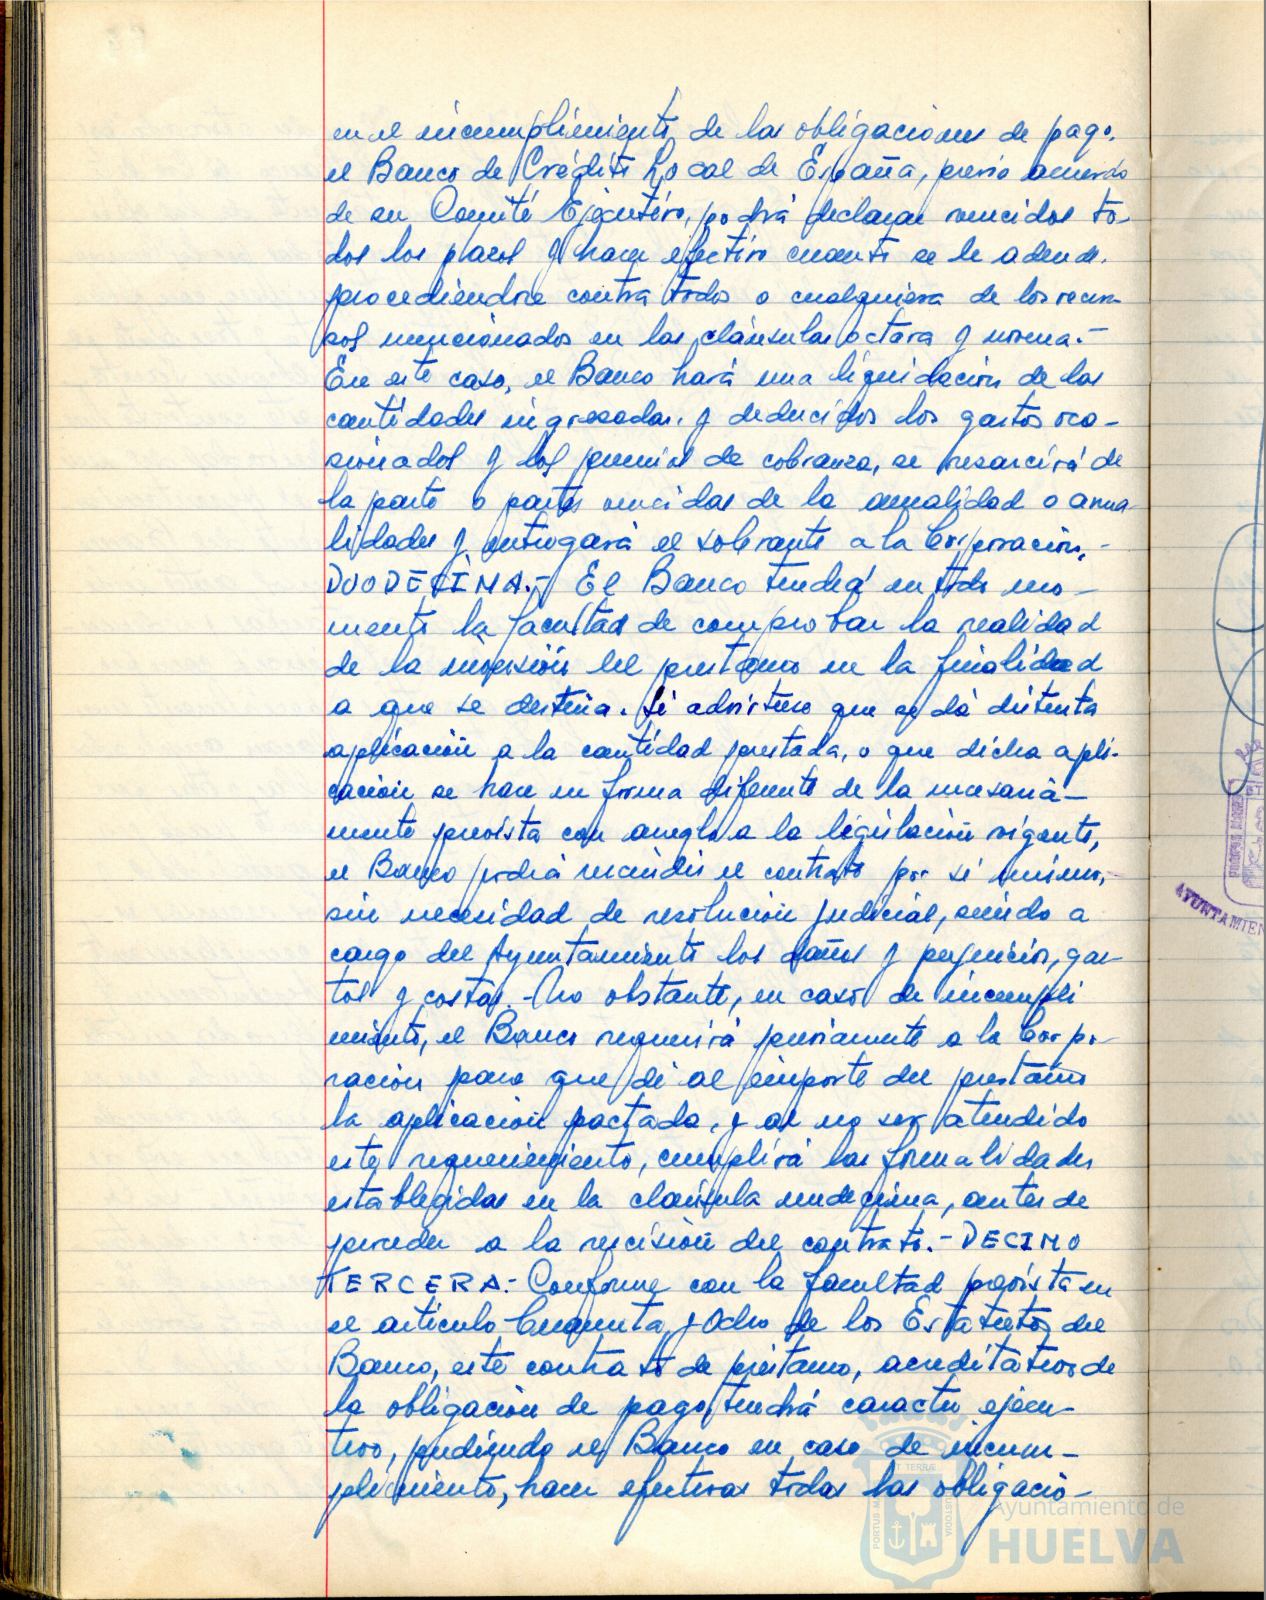 en el incumplimiento de las obligaciones de pago,
el Banco de Crédito Local de España, previo acuerdo
de su Comité Ejecutivo, podrá declarar vencidos to-
dos los plazos y hacer efectivo cuanto se le adende,
procediendose contra todos o cualquiera de los recur-
sos mencionados en las cláusulas octava y novena.-
En este caso, el Banco hará una liquidación de las
cantidades ingresadas, y deducidos los gastos oca-
sionados y los premios de cobranza, se resarcirá de
la parte o partes vencidas de la anualidad o anua-
lidades y entregará el sobrante a la Corporación.-
DUODECIMA.- El Banco tendrá en todo mo-
mento la facultad de comprobar la realidad
de la inversión del prestamo en la finalidad
a que se destina. Si advirtiese que se dá distinta
aplicación a la cantidad prestada, o que dicha apli-
cación se hace en forma diferente de la necesaria-
mente prevista con arreglo a la legislación vigente,
el Banco podrá rescindir el contrato por sí mismo,
sin necesidad de resolución judicial, siendo a
cargo del Ayuntamiento los daños y perjuicios, gas-
tos y costas.- No obstante, en caso de incumpli
miento, el Banco requerirá previamente a la Corpo-
ración para que dé al importe del prestamo
la aplicación pactada, y al no ser atendido
este requerimiento, cumplirá las formalidades
establecidas en la claúsula undecima, antes de
proceder a la rescisión del contrato.- DECIMO
TERCERA.- Conforme con la facultad prevista en
el artículo Cincuenta y Ocho de los Estatutos del
Banco, este contrato de préstamo, acreditativo de
la obligación de pago, tendrá caracter ejecu-
tivo, pudiendo el Banco en caso de incum-
plimiento, hacer efectivas todas las obligacio-
AYUNTAMIEN
PORTUS MARIS
ET TERRÆ
CUSTODIA
Ayuntamiento de
HUELVA